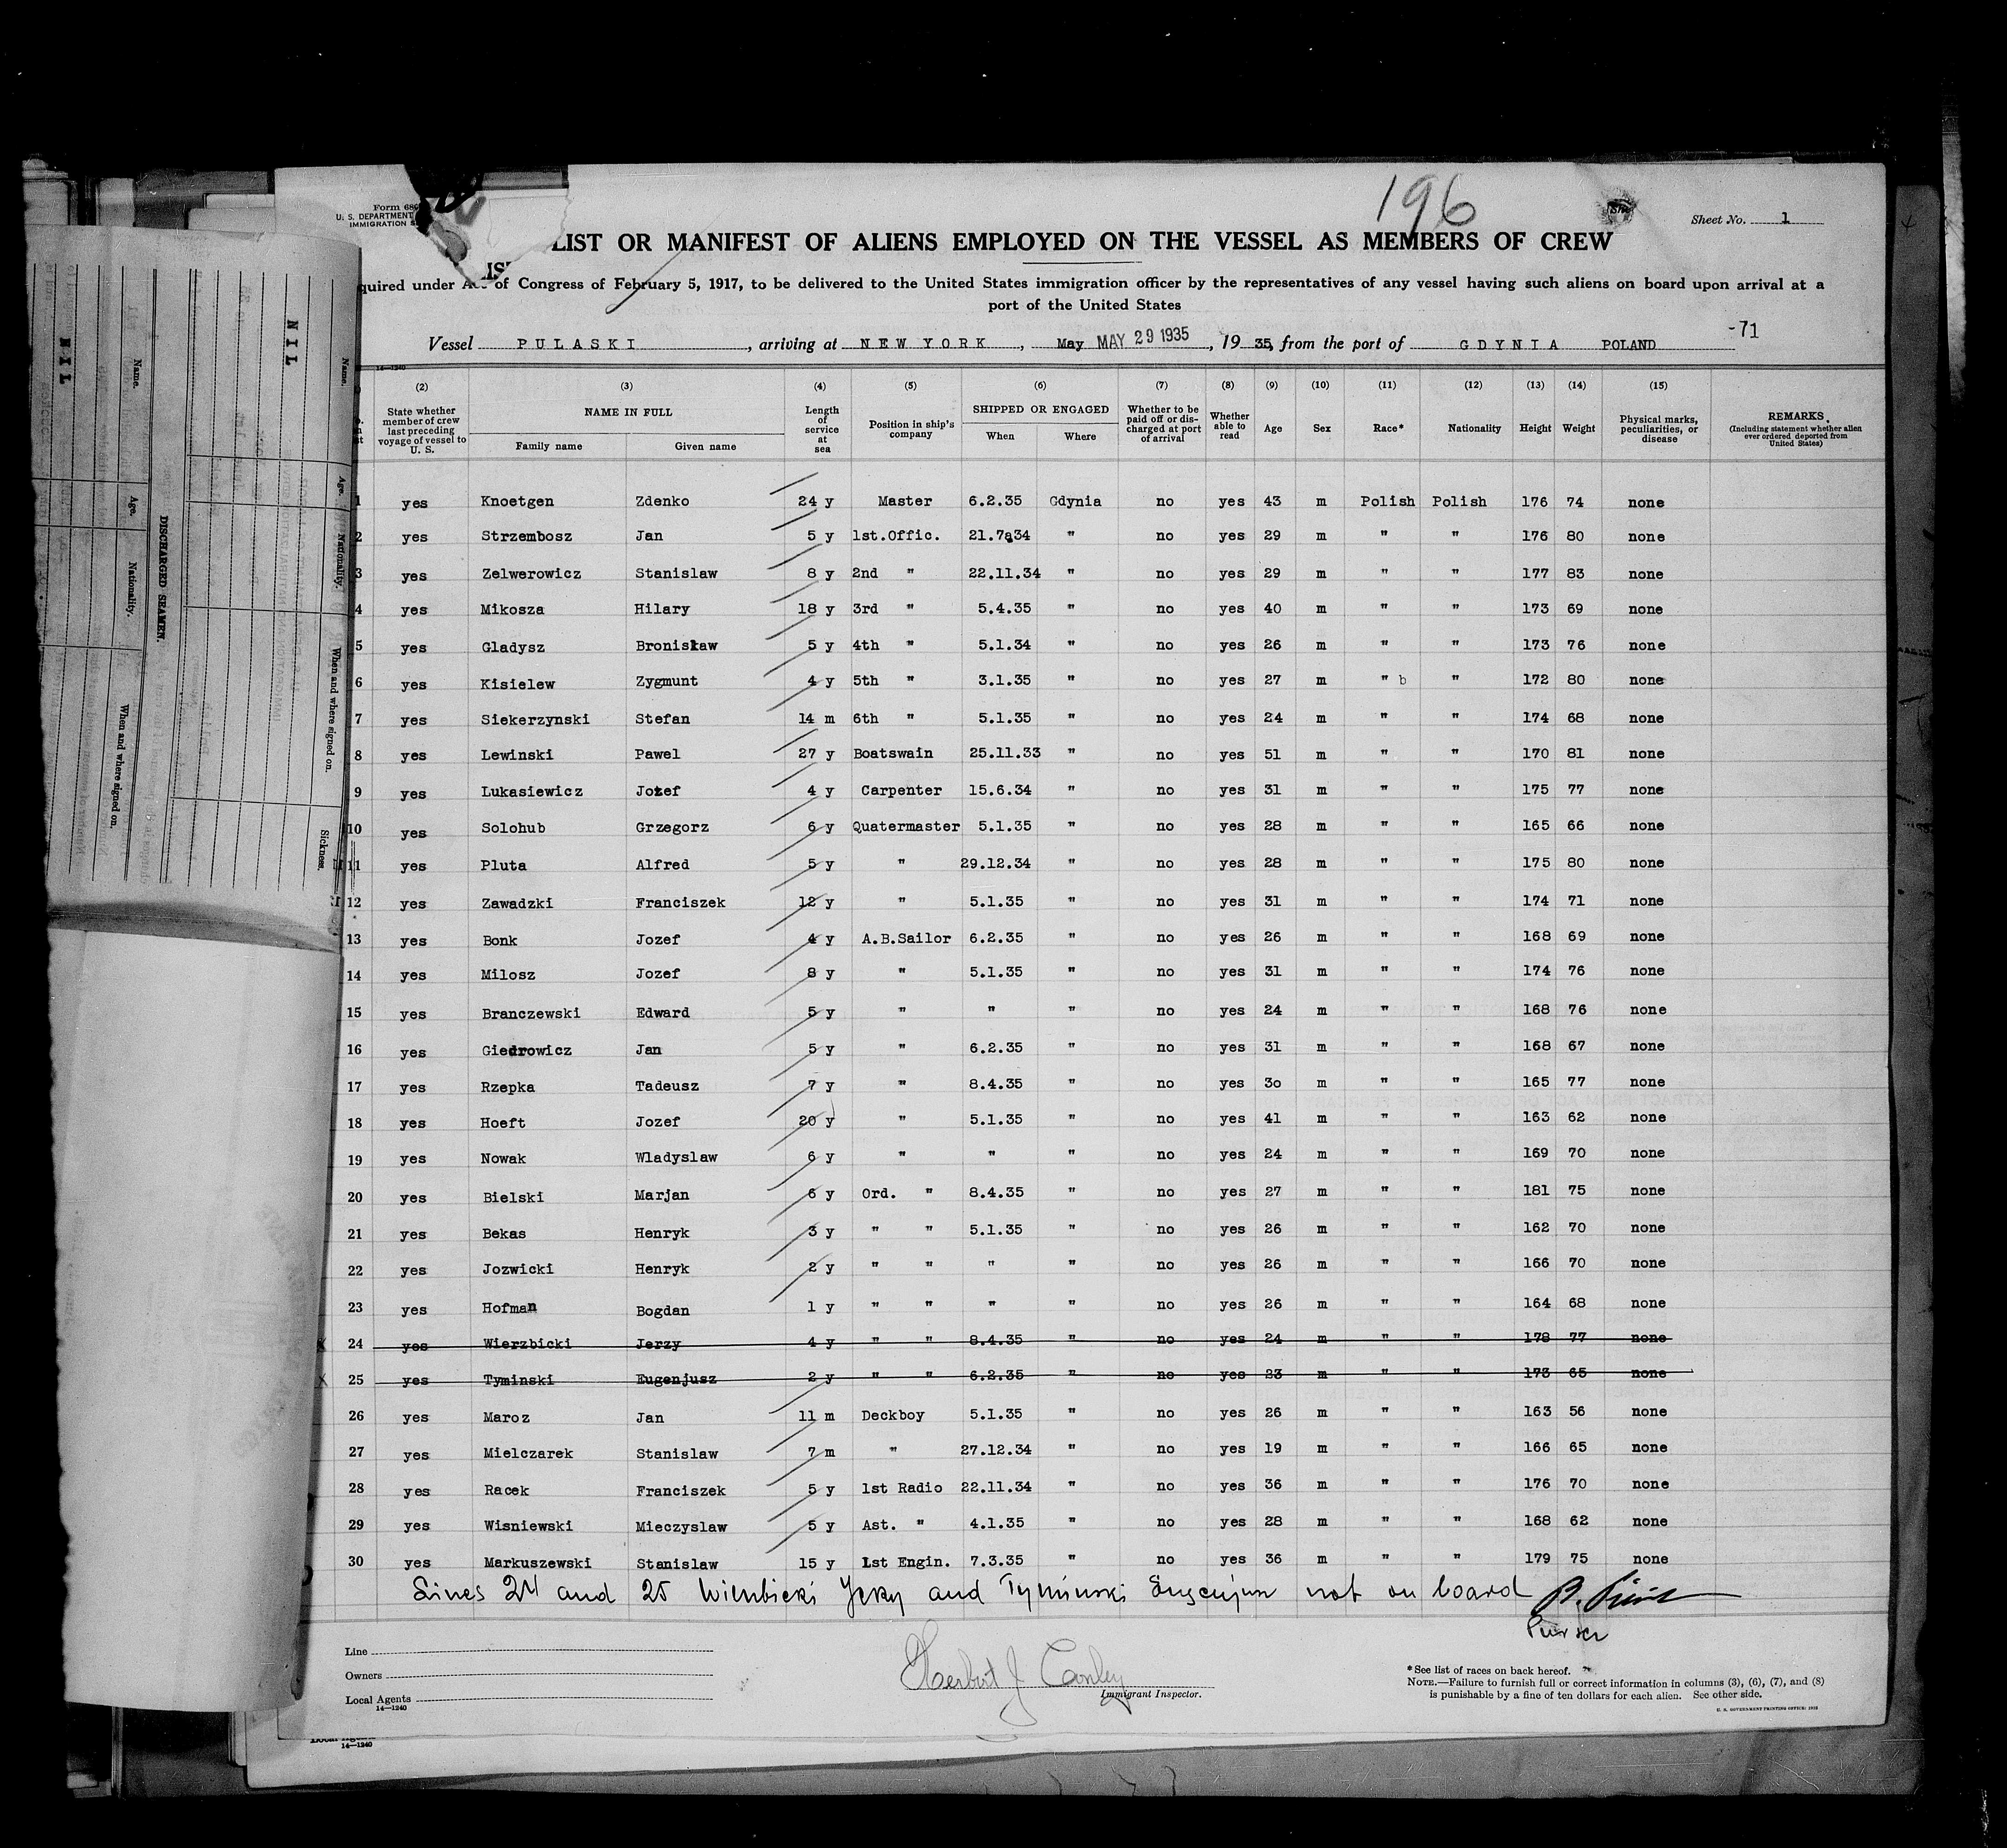 196
Form 68
U. S. DEPARTMENT
IMMIGRATION S
Sheet No. 1
LIST OR MANIFEST OF ALIENS EMPLOYED ON THE VESSEL AS MEMBERS OF CREW
quired under Act of Congress of February 5, 1917, to be delivered to the United States immigration officer by the representatives of any vessel having such aliens on board upon arrival at a
port of the United States
-71
Vessel PULASKI, arriving at NEW YORK, May MAY 29 1935, 1935, from the port of GDYNIA POLAND
14—1240
(2) (3) (4) (5) (6) (7) (8) (9) (10) (11) (12) (13) (14) (15)
State whether member of crew last preceding voyage of vessel to U. S. NAME IN FULL Family name Given name Length of service at sea Position in ship's company SHIPPED OR ENGAGED When Where Whether to be paid off or discharged at port of arrival Whether able to read Age Sex Race* Nationality Height Weight Physical marks, peculiarities, or disease REMARKS (Including statement whether alien ever ordered deported from United States)
1 yes Knoetgen Zdenko 24 y Master 6.2.35 Gdynia no yes 43 m Polish Polish 176 74 none
2 yes Strzembosz Jan 5 y 1st.Offic. 21.7a34 " no yes 29 m " " 176 80 none
3 yes Zelwerowicz Stanislaw 8 y 2nd " 22.11.34 " no yes 29 m " " 177 83 none
4 yes Mikosza Hilary 18 y 3rd " 5.4.35 " no yes 40 m " " 173 69 none
5 yes Gladysz Bronisław 5 y 4th " 5.1.34 " no yes 26 m " " 173 76 none
6 yes Kisielew Zygmunt 4 y 5th " 3.1.35 " no yes 27 m " b " 172 80 none
7 yes Siekerzynski Stefan 14 m 6th " 5.1.35 " no yes 24 m " " 174 68 none
8 yes Lewinski Pawel 27 y Boatswain 25.11.33 " no yes 51 m " " 170 81 none
9 yes Lukasiewicz Jozef 4 y Carpenter 15.6.34 " no yes 31 m " " 175 77 none
10 yes Solohub Grzegorz 6 y Quatermaster 5.1.35 " no yes 28 m " " 165 66 none
11 yes Pluta Alfred 5 y " 29.12.34 " no yes 28 m " " 175 80 none
12 yes Zawadzki Franciszek 12 y " 5.1.35 " no yes 31 m " " 174 71 none
13 yes Bonk Jozef 4 y A.B.Sailor 6.2.35 " no yes 26 m " " 168 69 none
14 yes Milosz Jozef 8 y " 5.1.35 " no yes 31 m " " 174 76 none
15 yes Branczewski Edward 5 y " " " no yes 24 m " " 168 76 none
16 yes Giedrowicz Jan 5 y " 6.2.35 " no yes 31 m " " 168 67 none
17 yes Rzepka Tadeusz 7 y " 8.4.35 " no yes 3o m " " 165 77 none
18 yes Hoeft Jozef 20 y " 5.1.35 " no yes 41 m " " 163 62 none
19 yes Nowak Wladyslaw 6 y " " " no yes 24 m " " 169 70 none
20 yes Bielski Marjan 6 y Ord. " 8.4.35 " no yes 27 m " " 181 75 none
21 yes Bekas Henryk 3 y " " 5.1.35 " no yes 26 m " " 162 70 none
22 yes Jozwicki Henryk 2 y " " " " no yes 26 m " " 166 70 none
23 yes Hofman Bogdan 1 y " " " " no yes 26 m " " 164 68 none
X 24 yes Wierzbicki Jerzy 4 y " " 8.4.35 " no yes 24 m " " 178 77 none
X 25 yes Tyminski Eugenjusz 2 y " " 6.2.35 " no yes 23 m " " 173 65 none
26 yes Maroz Jan 11 m Deckboy 5.1.35 " no yes 26 m " " 163 56 none
27 yes Mielczarek Stanislaw 7 m " 27.12.34 " no yes 19 m " " 166 65 none
28 yes Racek Franciszek 5 y 1st Radio 22.11.34 " no yes 36 m " " 176 70 none
29 yes Wisniewski Mieczyslaw 5 y Ast. " 4.1.35 " no yes 28 m " " 168 62 none
30 yes Markuszewski Stanislaw 15 y 1st Engin. 7.3.35 " no yes 36 m " " 179 75 none
Lines 24 and 25 Wierzbicki Jerzy and Tyminski Eugenjusz not on board
Purser
Line
Owners
Local Agents
14—1240
Herbert J Conley
Immigrant Inspector.
*See list of races on back hereof.
NOTE.—Failure to furnish full or correct information in columns (3), (6), (7), and (8)
is punishable by a fine of ten dollars for each alien. See other side.
U. S. GOVERNMENT PRINTING OFFICE: 1932
14—1240
NIL
Name. Age. Nationality. When and where signed on. Sickness.
DISCHARGED SEAMEN.
Name. Age. Nationality. When and where signed on.
NIL